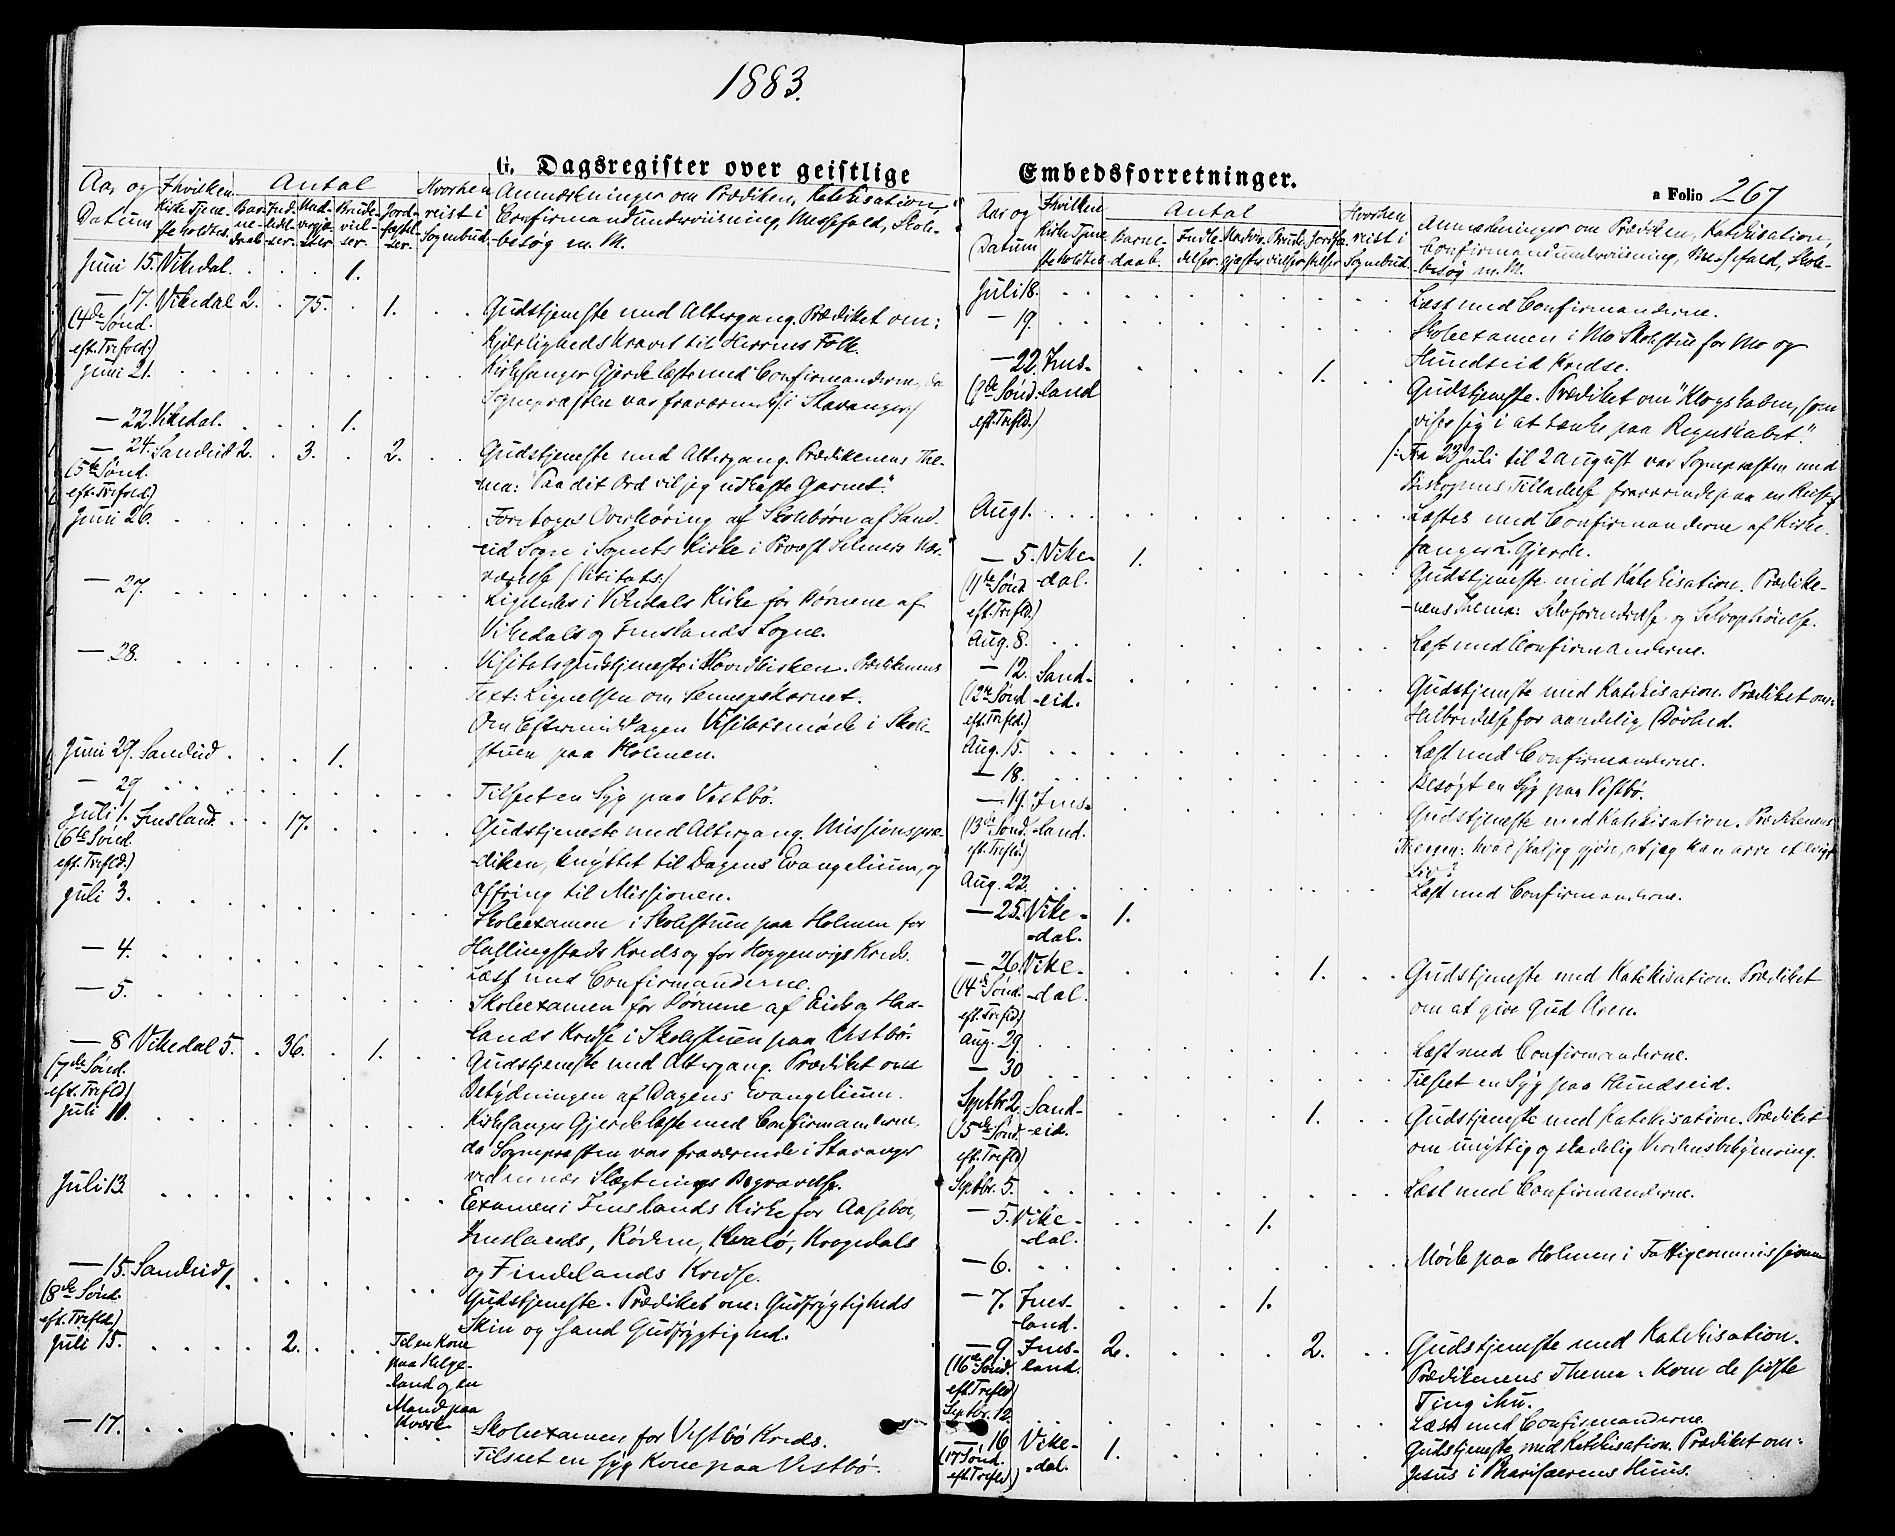 1883.
G. Dagsregister over geistlige
Aar og Datum
I hvilken Kirke Tjeneste holdtes.
Antal
Barnedaab.
Indledelser.
Nadvergjæster.
Brudevielser.
Jordfæstelser.
Hvorhen reist i Sognebud.
Anmærkninger om Prædiken, Katekisation
Confirmandundervisning, Messefald, Skole-
besøg m. M.
Juni 15. Vikedal. 1.
— 17. Vikedal 2. 75. 1. Gudstjeneste med Altergang. Prædiket om:
(4de Sønd. eft. Trefold.) Kjærlighedskravet til Herrens Folk.
Juni 21. Kirkesanger Gjerde læste med Confirmanderne, da
Sognepræsten var fraværende i Stavanger.
— 22. Vikedal. 1.
— 24. Sandeid 2. 3. 2. Gudstjeneste med Altergang. Prædikenens The-
(5te Sønd. eft. Trefold.) ma: "Paa dit Ord vil jeg udkaste Garnet."
Juni 26. Foretoges Overhøring af Skolebørn af Sand-
eid Sogn i Sognets Kirke i Provst Selmers Nær-
værelse (Visitats.)
— 27. Ligeledes i Vikedals Kirke for Børnene af
Vikedals og Imslands Sogne.
— 28. Visitatsgudstjeneste i Hovedkirken. Prædikenens
Text: Lignelsen om Sennepskornet.
Om Eftermiddagen Visitatsmøde i Skole-
stuen paa Holmen.
Juni 29. Sandeid 1.
— 29 Tilseet en Syg paa Vestbø.
Juli 1. Imsland. 17. Gudstjeneste med Altergang. Missionspræ-
(6te Sønd. eft. Trefld.) diken, knyttet til Dagens Evangelium, og
Offring til Missionen.
Juli 3. Skoleexamen i Skolestuen paa Holmen for
Hallingstads Kreds og for Hoggenvigs Kreds.
— 4. Læst med Confirmanderne.
— 5. Skoleexamen for Børnene af Eids og Haa-
lands Kredse i Skolestuen paa Vestbø.
— 8 Vikedal 5. 36. 1. Gudstjeneste med Altergang. Prædiket om
(7de Sønd. eft. Trefld.) Betydningen af Dagens Evangelium.
Juli 11. Kirkesanger Gjerde læste med Confirmanderne,
da Sognepræsten var fraværende i Stavanger
ved en nær Slægtnings Begravelse.
Juli 13. Examen i Imslands Kirke for Aasebøe,
Imslands, Rødne, Kvalø, Krogedals
og Findelands Kredse.
— 15. Sandeid 1. Gudstjeneste. Prædiket om: Gudfrygtigheds
(8de Sønd. eft. Trefld.) Skin og sand Gudfrygtighed.
Juli 15. 2. Til en Kone paa Helgeland og en Mand paa Kværk
— 17. Skoleexamen for Vestbø Kreds.
Tilseet en syg Kone paa Vestbø.
Embedsforretninger.
a Folio 267
Aar og Datum
I hvilken Kirke Tjeneste holdtes
Antal
Barnedaab.
Indledelser.
Nadvergjæster.
Brudevielser.
Jordfæstelser.
Hvorhen reist i Sognebud.
Anmærkninger om Prædiken, Katekisation,
Confirmandundervisning, Messefald, Skole-
besøg m. M.
Juli 18. Læst med Confirmanderne.
— 19. Skoleexamen i Mo Skolestue for Mo og
Hundseid Kredse.
— 22. Imsland 1. Gudstjeneste. Prædiket om "Klogskaben, som
(9de Sønd. eft. Trefld.) viser sig i at tænke paa Regnskabet."
/: Fra 23 Juli til 2 August var Sognepræsten med
Biskopens Tilladelse fraværende paa en Reise :/
Aug 1. Læstes med Confirmanderne af Kirke-
sanger L. Gjerde.
— 5. Vikedal. 1. Gudstjeneste med Katekisation. Prædike-
(11te Sønd. eft. Trefld.) nens Thema: Selvfornedrelse og Selvophøielse.
Aug. 8. Læst med Confirmanderne.
— 12. Sandeid. Gudstjeneste med Katekisation. Prædiket om:
(12te Sønd. eft. Trefld.) Helbredelse for aandelig Døvhed.
Aug. 15. Læst med Confirmanderne.
— 18. Besøgt en Syg paa Vestbø.
— 19. Imsland. Gudstjeneste med Katekisation. Prædikenens
(13de Sønd. eft. Trefld.) Themen: hvad skal jeg gjøre, at jeg kan arve et evigt
Liv?
Aug. 22. Læst med Confirmanderne.
— 25. Vikedal. 1.
— 26. Vikedal. 1. Gudstjeneste med Katekisation. Prædiket
(14de Sønd. eft. Trefld) om at give Gud Æren.
Aug. 29. Læst med Confirmanderne.
— 30 Tilseet en Syg paa Hundseid.
Septbr 2. Sandeid. 1. Gudstjeneste med Katekisation. Prædiket
(15de Sønd. eft. Trefld) om unyttig og skadelig Verdensbekymring.
Septbr. 5. Læst med Confirmanderne.
— 5. Vikedal. 1.
— 6. Møde paa Holmen i Fattigcommissionen
— 7. Imsland. 1.
— 9. Imsland. 2. 2. Gudstjeneste med Katekisation.
(16de Sønd. eft. Trefld) Prædikenens Thema: Kom de sidste
Ting ihu.
Septbr. 12. Læst med Confirmanderne.
— 16 Vikedal. 1. Gudstjeneste med Katekisation. Prædiket om:
(17 Sønd. eft. Trefld) Jesus i Pharisæerens Huus.